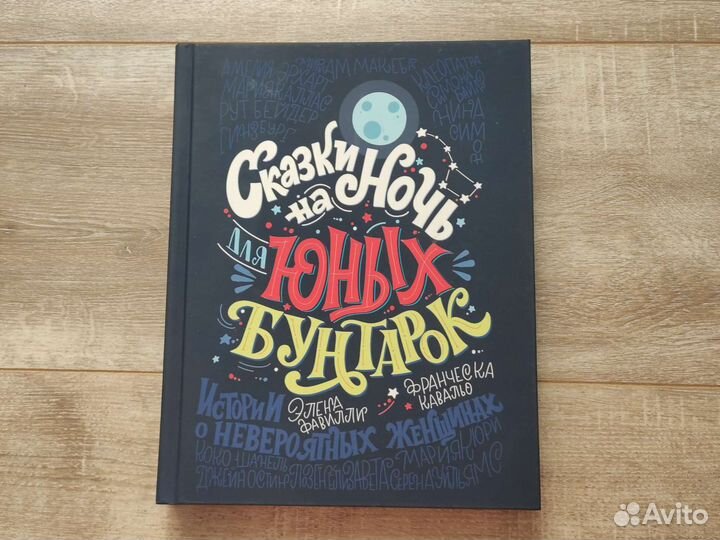 АМЕЛИЯ ЭРХАРТ
МИРИАМ МАКЕБА
МАРИЯ КАЛЛАС
РУТ БЕЙДЕР
ГИНЗБУРГ
КЛЕОПАТРА
СИМОНА БАЙЛС
НИНА
СИМОН
Сказки
на Ночь
для
Юных
Бунтарок
Элена
Фавилли
Франческа
Кавалло
Истории
о невероятных женщинах
Коко Шанель
Мария Кюри
Джейн Остин
Елизавета
Серена Уильямс
Avito